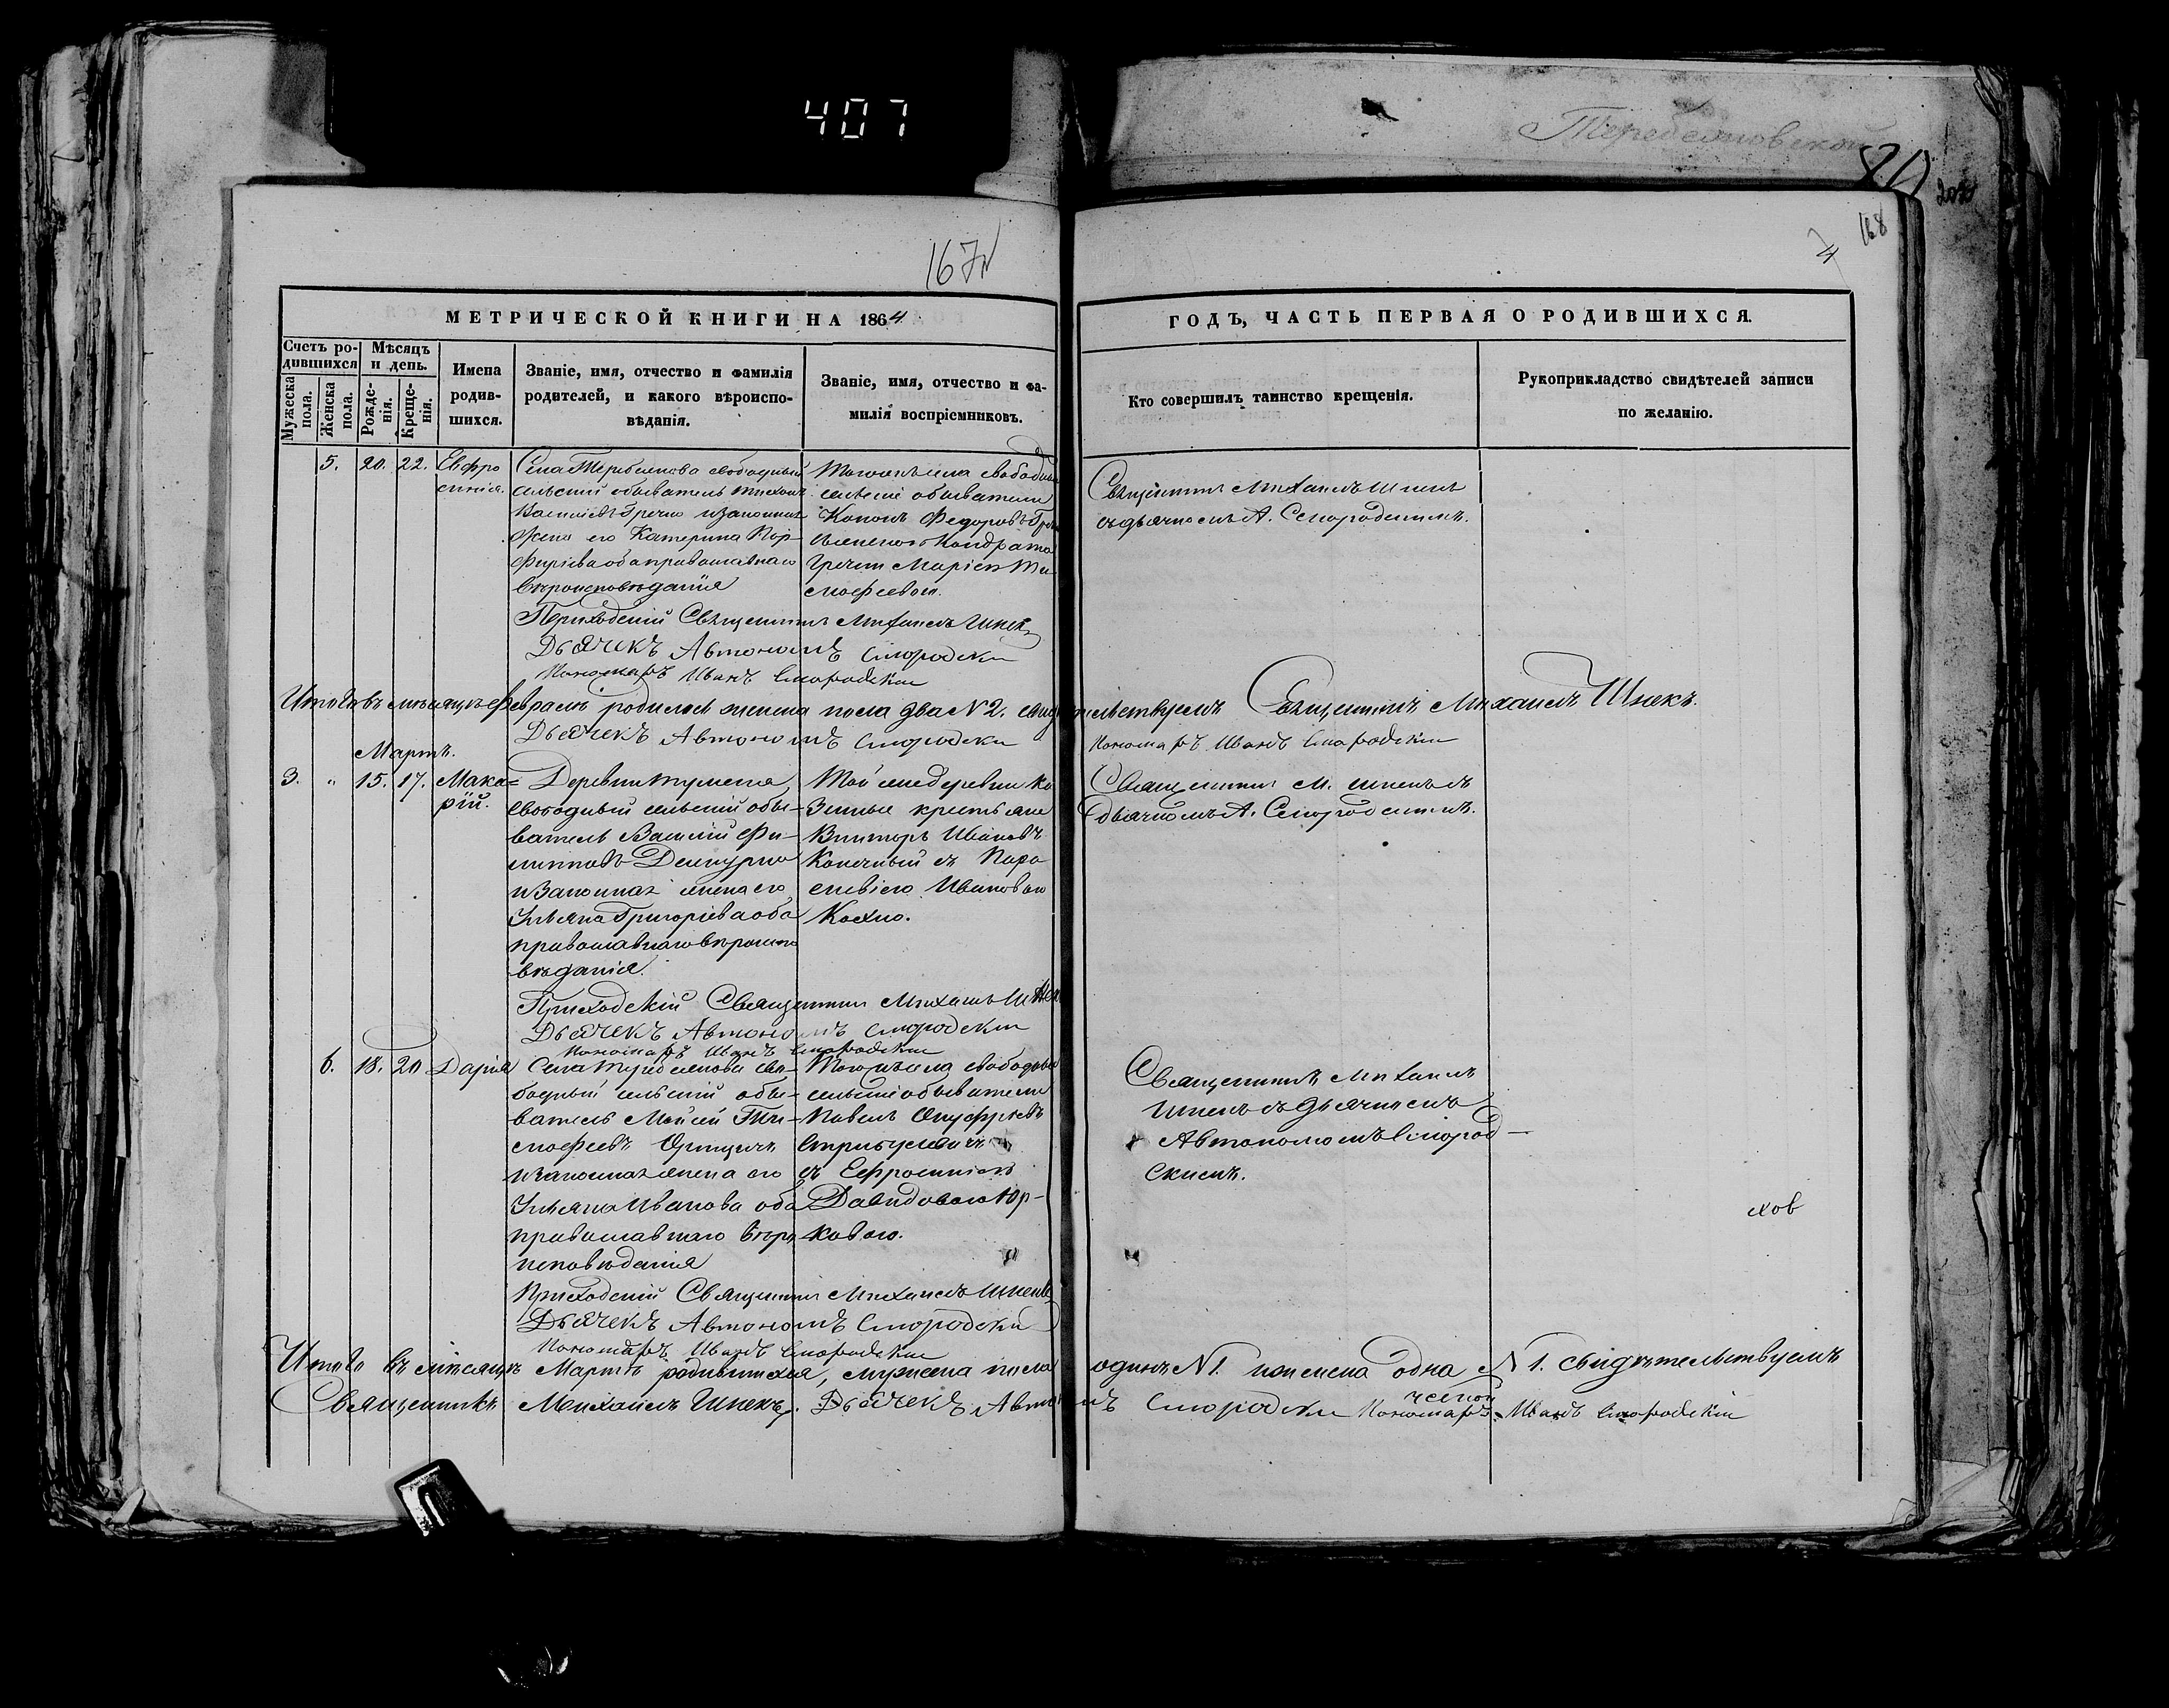 407
Теребеяновской
80
167
168
4
МЕТРИЧЕСКОЙ КНИГИ НА 1864
ГОДЪ, ЧАСТЬ ПЕРВАЯ О РОДИВШИХСЯ.
Счетъ родившихся
Мѣсяцъ и день.
Мужеска пола.
Женска пола.
Рожденія.
Крещенія.
Имена родившихся.
Званіе, имя, отчество и фамилія родителей, и какого вѣроисповѣданія.
Званіе, имя, отчество и фамилія воспріемниковъ.
Кто совершилъ таинство крещенія.
Рукоприкладство свидѣтелей записи по желанію.
5. 20. 22. Евфро
синія.
свободный
сельскій обыватель Тихонъ
Василіевъ Гречко и законная
жена его Катерина Пор-
фиріева оба православнаго
вѣроисповѣданія
свободные
сельскіе обыватели
Кононъ Федоровъ
Кондрата
Гречки Маріею Ти
мофеевою.
Священникъ Михаилъ Шпекъ
съ дьячкомъ А. Смородскимъ.
Приходскій Священникъ Михаилъ Шпекъ
Дьячекъ Автономъ Смородскій
Пономарь Иванъ Смородскій
Итого въ мѣсяцѣ Февралѣ родилось женска пола два №2. свидѣтельствуемъ Священникъ Михаилъ Шпекъ.
Дьячекъ Автономъ Смородскій Пономарь Иванъ Смородскій
Мартъ.
3. " 15. 17. Мака-
рій.
Деревни
свободный сельскій обы-
ватель Василій Фи-
липповъ
и законная жена его
Ульяна Григоріева оба
православнаго вѣроиспо
вѣданія.
Той же деревни ка
зенные крестьяне
Викторъ Ивановъ
съ Пара
скевіею Ивановою
Косхно.
Священникъ М. Шпекъ съ
дьячкомъ А. Смородскимъ.
Приходскій Священникъ Михаилъ Шпекъ
Дьячекъ Автономъ Смородскій
Пономарь Иванъ Смородскій
6. 18. 20 Дарія
Села сво-
бодный сельскій обы-
ватель Моисей Ти-
мофеевъ
и законная жена его
Ульяна Иванова оба
православнаго вѣро
исповѣданія
Того же села свободные
сельскіе обыватели
Павелъ Онуфріевъ
съ Ефросиніею
Давидовою Юр-
ковою.
Священникъ Михаилъ
Шпекъ съ дьячкомъ
Автономомъ Смород-
скимъ.
хов
Приходскій Священникъ Михаилъ Шпекъ
Дьячекъ Автономъ Смородскій
Пономарь Иванъ Смородскій
Итого въ мѣсяцѣ Мартѣ родившихся, мужеска пола одинъ №1. и женска одна №1. свидѣтельствуемъ
Священникъ Михаилъ Шпекъ. Дьячекъ Автономъ Смородскій Пономарь Иванъ Смородскій